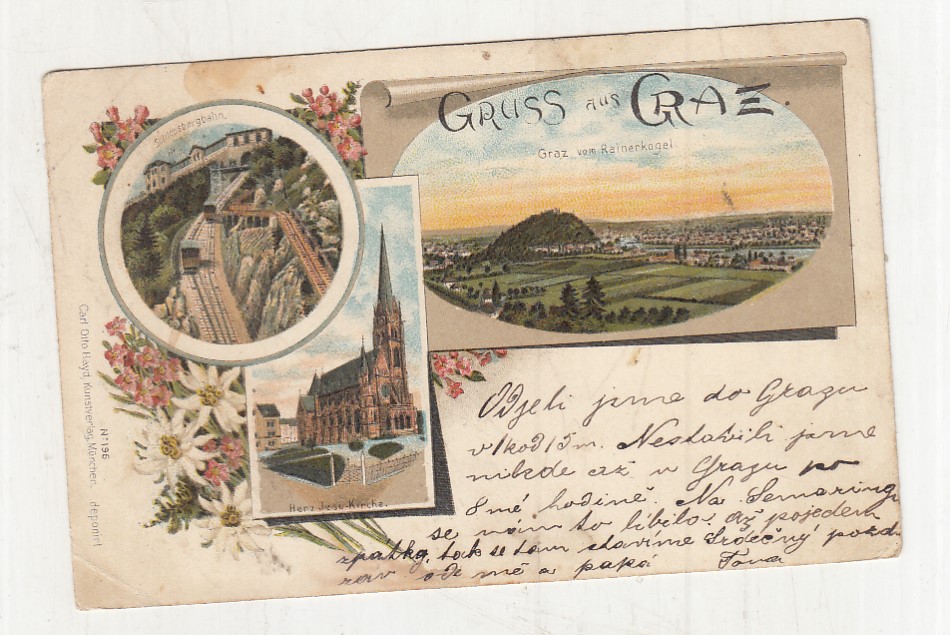 GRUSS aus GRAZ.
Graz vom Rainerkogel
Schlossbergbahn.
Herz Jesu-Kirche.
Carl Otto Hayd, Kunstverlag, München.
Nº 196
deponirt
Odjeli jsme do Gragu
v 1 hod 15 m. Nestavili jsme
nikede až v Gragu po
8 mé hodině. Na Semaringu
se nám to líbilo, až pojedem
zpátky, tak se tam stavíme Srdečný pozd
rav ode mě a papá